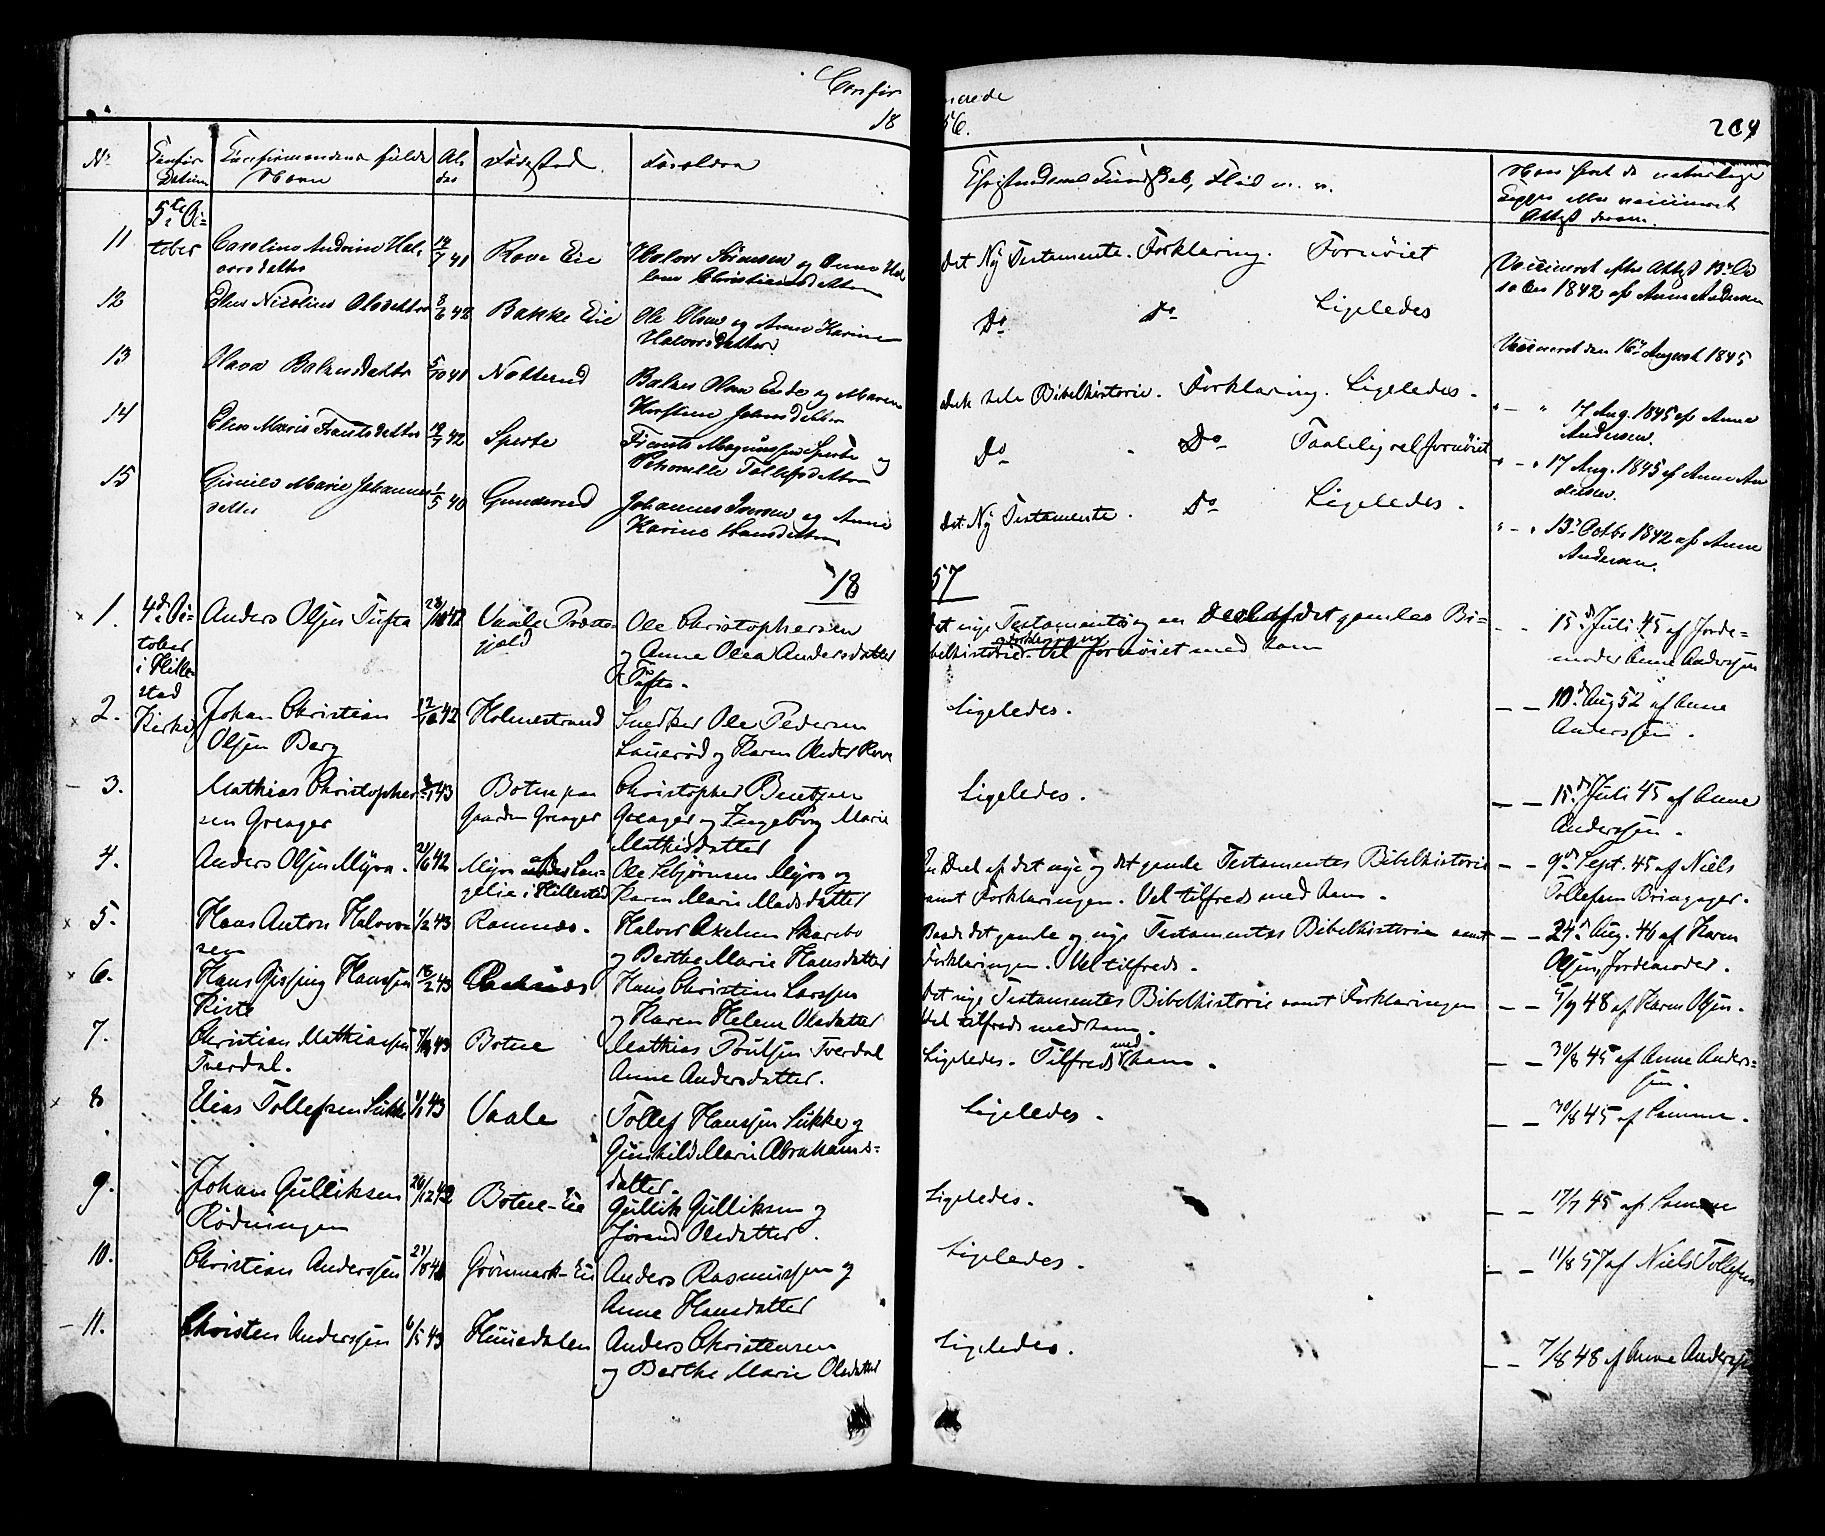 Confir maede
18 56. 204
No Confir Datum Confirmandens fulde Navn Alder Fødested Forældre Christendoms Kundskab, Flid m. m. Han havt de naturlige Kopper eller vaccineret Attest derom
5te October
11 Caroline Andrine Halvorsdatter 14/7 41 Rove Eie Halvor Sörensen og Anne Helene Christiansdatter Det Ny Testamente. Forklaring. Fornöiet Vaccineret efter Attest 13 October 1842 af Anne Andersen
12 Elen Nicoline Olsdatter 8/6 42 Bakke Eie Ole Olsen og Anne Karine Halvorsdatter Do Do Ligeledes Vaccineret den 16 August 1845
13 Olava Balzersdatter 5/10 41 Nötterud Balzer Olsen Eide og Maren Kirstine Johnsdatter Det hele Bibelhistorie. Forklaring. Ligeledes. " — " 17 Aug. 1845 af Anne Andersen.
14 Elen Marie Frantsdatter 19/7 42 Sperte Frants Magnussen Sperte og Pernille Tollefsdatter Do Do Taalelig vel fornöiet " — " 17 Aug. 1845 af Anne Andersen.
15 Gunild Marie Johannesdatter 1/5 40 Gunderud Johannes Iversen og Anne Karine Hansdatter Det Ny Testamente. Do Ligeledes. " — " 13 Octbr 1842 af Anne Andersen.
18 57
1. 4de October i Hillestad Kirke Anders Olsen Tufta 28/10 42 Vaale Præstegjeld Ole Christophersen og Anne Olea Andersdatter Tufta. Det nye Testamente og en Deel af det gamles Bibelhistorie Forklaringen Vel fornöiet med ham — — 15de Juli 45 af Jordemoder Anne Anderssen
2. Johan Christian Olsen Berg 12/10 42 Holmestrand Snedker Ole Pedersen Lauerød og Karen Olsdtr Rove Ligeledes. — — 10de Aug 52 af Anne Anderssen.
3. Mathias Christophersen Greager 43 Botne paa Gaarden Greager Christopher Bentzen Greager og Ingeborg Marie Mathisdatter Ligeledes. — — 15de Juli 45 af Anne Anderssen.
4. Anders Olsen Myra. 21/6 42 Myra i Hillestad Ole Esbjørnsen Myra og Karen Marie Madsdatter En Deel af det nye og det gamle Testamentes Bibelhistorie samt Forklaringen. Vel tilfreds med ham. — — 9de Sept. 45 af Niels Tollefsen Bringager.
5. Hans Anton Halvorsen 1/2 43 Ramnæs. Halvor Axelsen Skarebo og Berthe Marie Hansdatter Baade det gamle og nye Testamentes Bibelhistorie samt Forklaringen. Vel tilfreds. — — 24de Aug. 46 af Karen Olsen, Jordemoder.
6. Hans Gjessing Hanssen Kiste 18/2 43 Ramnæs Hans Christian Larssen og Karen Helene Olsdatter Det nye Testamentes Bibelhistorie samt Forklaringen Vel tilfreds med ham. — — 5/9 48 af Karen Olsen.
7. Christian Mathiassen Tverdal. 43 Botne Mathias Poulsen Tverdal Anne Andersdatter. Ligeledes. Tilfreds med ham. — — 30/8 45 af Anne Anderssen.
8 Elias Tollefsen Sukke 43 Vaale Tollef Hanssen Sukke og Gunhild Marie Abrahamsdatter. Ligeledes. — — 30/8 45 af Samme.
9. Johan Gulliksen Rødningen 26/12 42 Botne-Eie Gullik Gulliksen og Jørand Olsdatter. Ligeledes. — — 17/7 45 af Samme
10. Christian Anderssen 21/8 41 Grönmark-Eie Anders Rasmussen og Anne Hansdatter Ligeledes. — — 11/8 57 af Niels Tollefsen
11. Christen Anderssen 6/5 43 Huuedalen Anders Christensen og Berthe Marie Olsdatter Ligeledes. — — 7/8 48 af Anne Anderssen